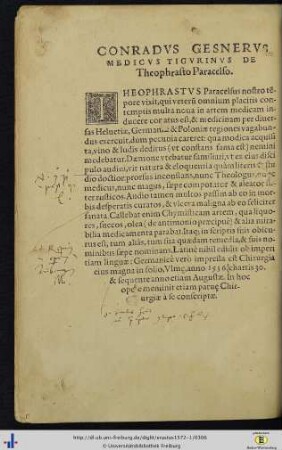 CONRADVS GESNERVS
MEDICVS TIGVRINVS DE
Theophrasto Paracelso.
THEOPHRASTVS Paracelsus nostro tē
pore vixit, qui veterū omnium placitis con
temptis multa noua in artem medicam in
ducere conatus est: & medicinam per diuer
sas Heluetiæ, Germaniæ & Poloniæ regiones vagabun
dus exercuit, dum pecuniis careret: qua modica acquisi
ta, vino & ludis deditus (et constans fama est) & nemini
medebatur. Dæmone vtebatur familiari, vt ex eius disci
pulo audiui, vir tota ære & eloquentia
dio doctior prorsus inconstans, nunc Theologum, nunc
medicum, nunc magum, sæpe compotatorē & aleatorē in
ter rusticos. Audio tamen multos passim ab eo in mor
bis desperatis curatos, & vlcera maligna ab eo feliciter
sanata. Callebat enim Chymisticam artem, qua liquo
res, succos, olea (de antimonio præcipuè) & alia mira
bilia medicamenta parabat. Itaq; in scriptis suis obscu
rus est, tum alias, tum sua quædam remedia, & suis no
minibus sæpe nominans. Latinè nihil edidit ob imperi
tiam linguæ: Germanicè verò impressa est Chirurgia
eius magna in folio, Vlmę, anno 1536. chartis 30.
& sequente anno etiam Augustæ. In hoc
opere meminit etiam paruę Chir-
urgiæ à se conscriptæ.
http://dl.ub.uni-freiburg.de/diglit/erastus1572-1/0306
© Universitätsbibliothek Freiburg